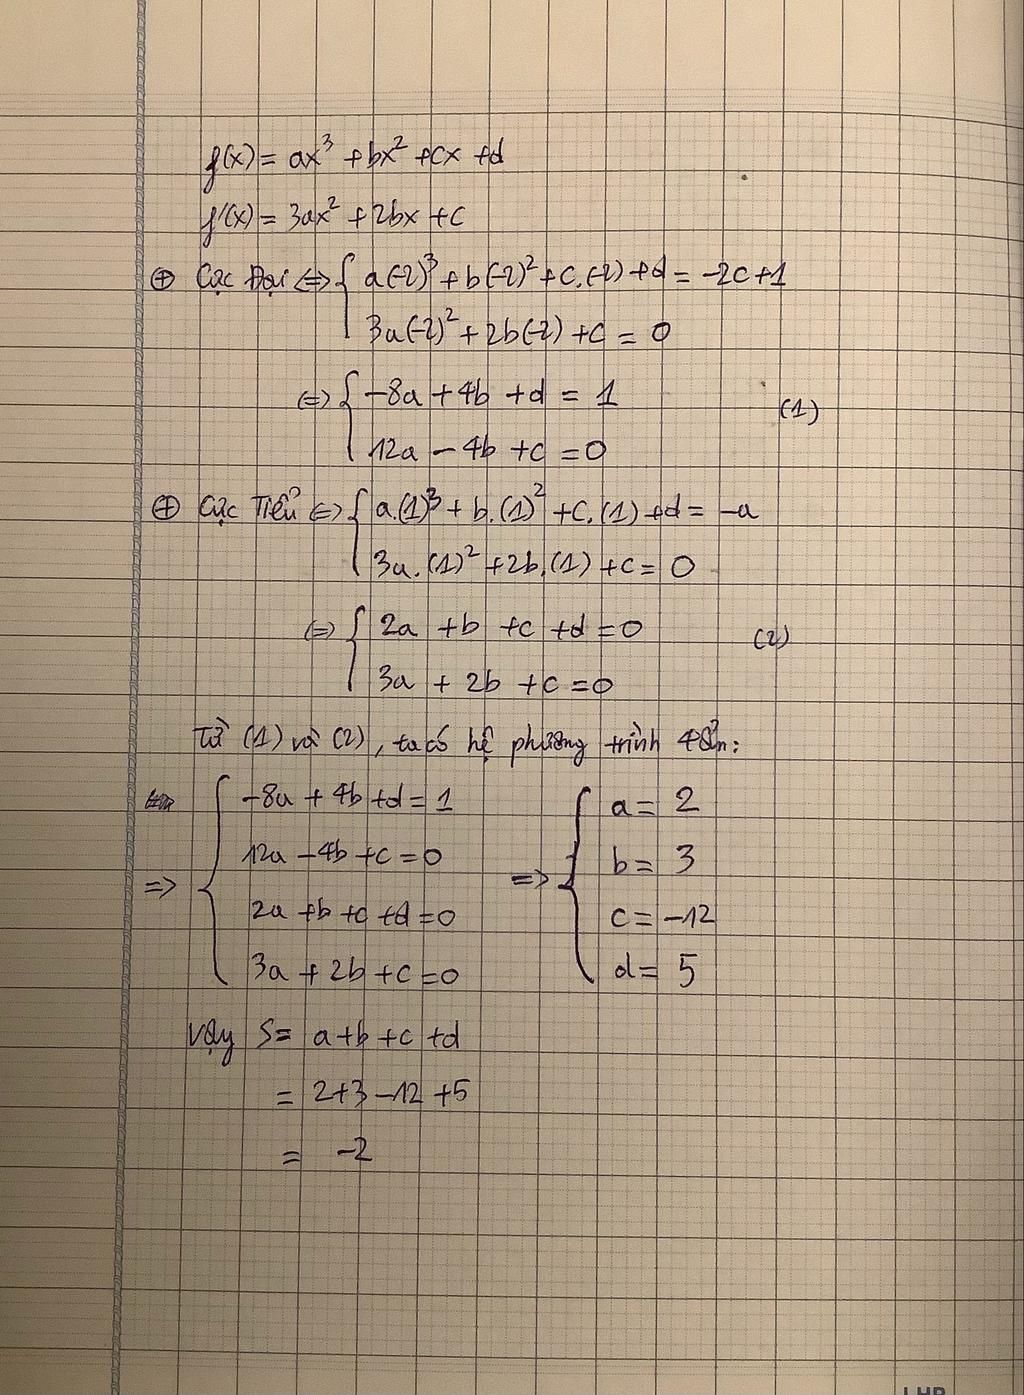 f(x) = ax³ + bx² + cx + d
f'(x) = 3ax² + 2bx + c
⊕ Cực Đại ⇔ { a(-2)³ + b(-2)² + c.(-2) + d = -2c + 1
3a(-2)² + 2b(-2) + c = 0
⇔ { -8a + 4b + d = 1 (1)
12a - 4b + c = 0
⊕ Cực Tiểu ⇔ { a.(1)³ + b.(1)² + c.(1) + d = -a
3a.(1)² + 2b.(1) + c = 0
⇔ { 2a + b + c + d = 0 (2)
3a + 2b + c = 0
Từ (1) và (2), ta có hệ phương trình 4 ẩn:
-8a + 4b + d = 1 a = 2
12a - 4b + c = 0 b = 3
⇒ { ⇒ {
2a + b + c + d = 0 c = -12
3a + 2b + c = 0 d = 5
Vậy S = a + b + c + d
= 2 + 3 - 12 + 5
= -2